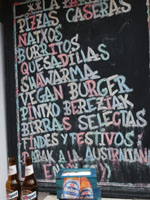 PIZZAS CASERAS
NATXOS
BURRITOS
QUESADILLAS
SHAWARMA
VEGAN BURGER
PINTXO BEREZIAK
BIRRAS SELECTAS
FINDES Y FESTIVOS:
RABAK A LA AUSTRALIANA